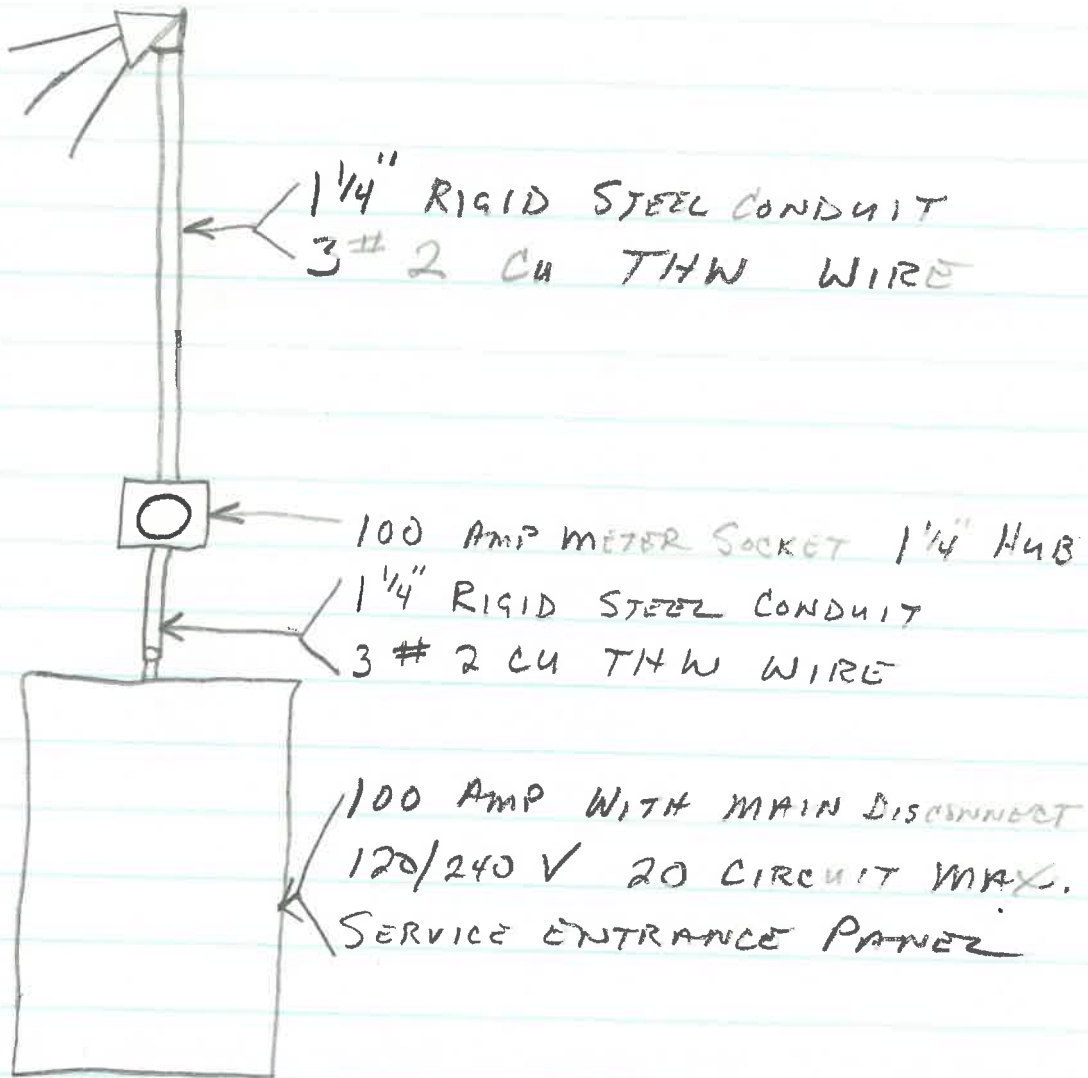 1 1/4" RIGID STEEL CONDUIT
3 # 2 CU THW WIRE
100 AMP METER SOCKET 1 1/4" HUB
1 1/4" RIGID STEEL CONDUIT
3 # 2 CU THW WIRE
100 AMP WITH MAIN DISCONNECT
120/240 V 20 CIRCUIT MAX.
SERVICE ENTRANCE PANEL